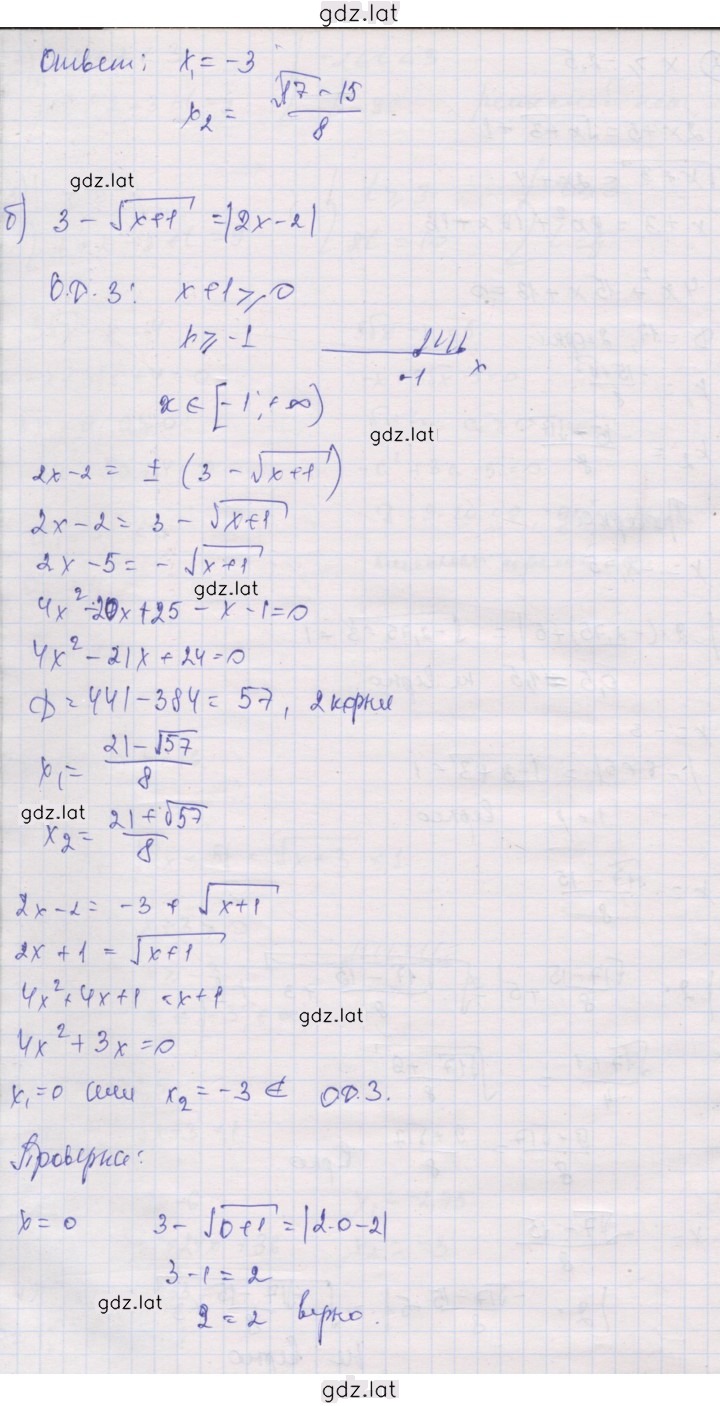 gdz.lat
Ответ: x₁ = -3
x₂ = (√17 - 15)/8
gdz.lat
б) 3 - √(x+1) = |2x-2|
О.Д.З: x+1 ⩾ 0
x ⩾ -1
-1 x
x ∈ [-1; +∞)
gdz.lat
2x-2 = ± (3 - √(x+1))
2x-2 = 3 - √(x+1)
2x-5 = - √(x+1)
gdz.lat
4x² - 20x + 25 - x - 1 = 0
4x² - 21x + 24 = 0
D = 441 - 384 = 57, 2 корня
x₁ = (21 - √57)/8
gdz.lat
x₂ = (21 + √57)/8
2x-2 = -3 + √(x+1)
2x+1 = √(x+1)
4x² + 4x + 1 = x + 1
gdz.lat
4x² + 3x = 0
x₁ = 0 или x₂ = -3 ∉ ОДЗ.
Проверка:
x = 0 3 - √(0+1) = |2·0-2|
3 - 1 = 2
gdz.lat
2 = 2 верно.
gdz.lat